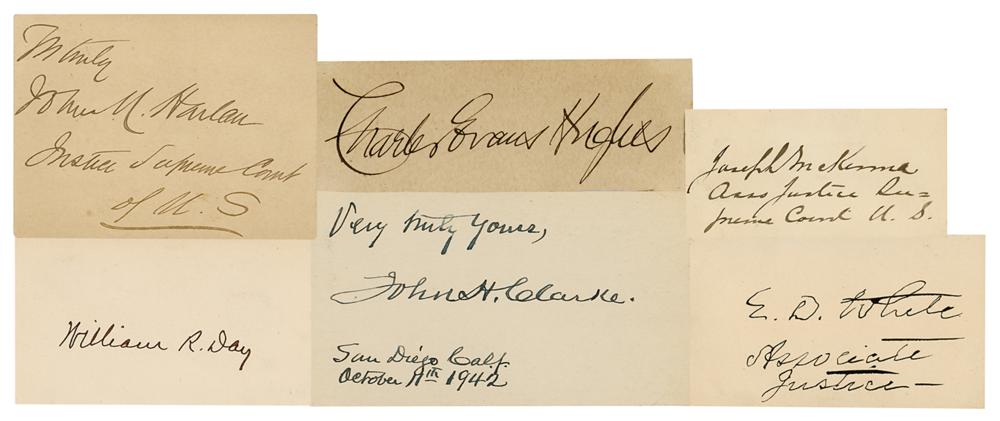 Yrs truly
John M. Harlan
Justice Supreme Court
of U. S
Charles Evans Hughes
Joseph McKenna
Asso Justice Su=
preme Court U. S.
William R. Day
Very truly yours,
John H. Clarke.
San Diego Calf.
October 11th 1942
E. D. White
Associate
Justice—